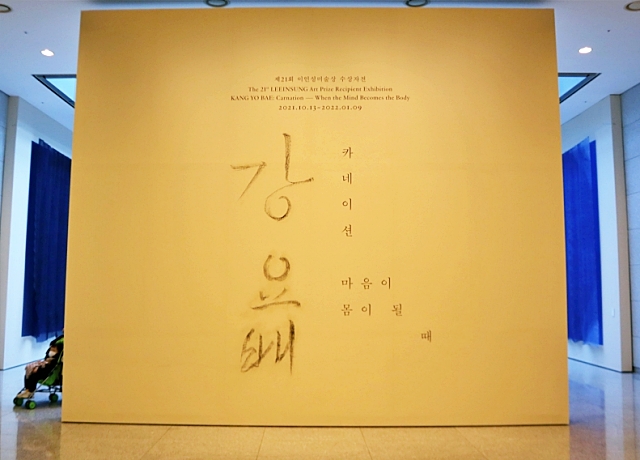 제21회 이인성미술상 수상자전
The 21st LEEINSUNG Art Prize Recipient Exhibition
KANG YO BAE: Carnation — When the Mind Becomes the Body
2021.10.13-2022.01.09
강
요
배
카
네
이
션
마음이
몸이 될
때